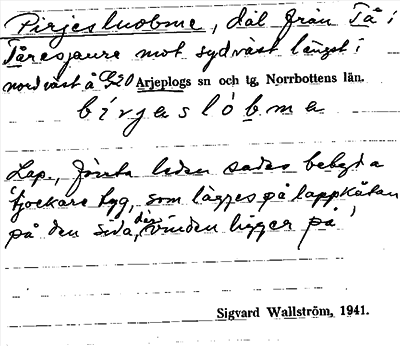 Pirjesluobme, dal från Tå i
Tåresjaure mot sydväst längst i
nordväst å G20 Arjeplogs sn och tg, Norrbottens län.
birjeslóbme
Lap., första leden sades betyda
'tjockare tyg, som lägges på lappkåtan
på den sida, där vinden ligger på'
Sigvard Wallström, 1941.